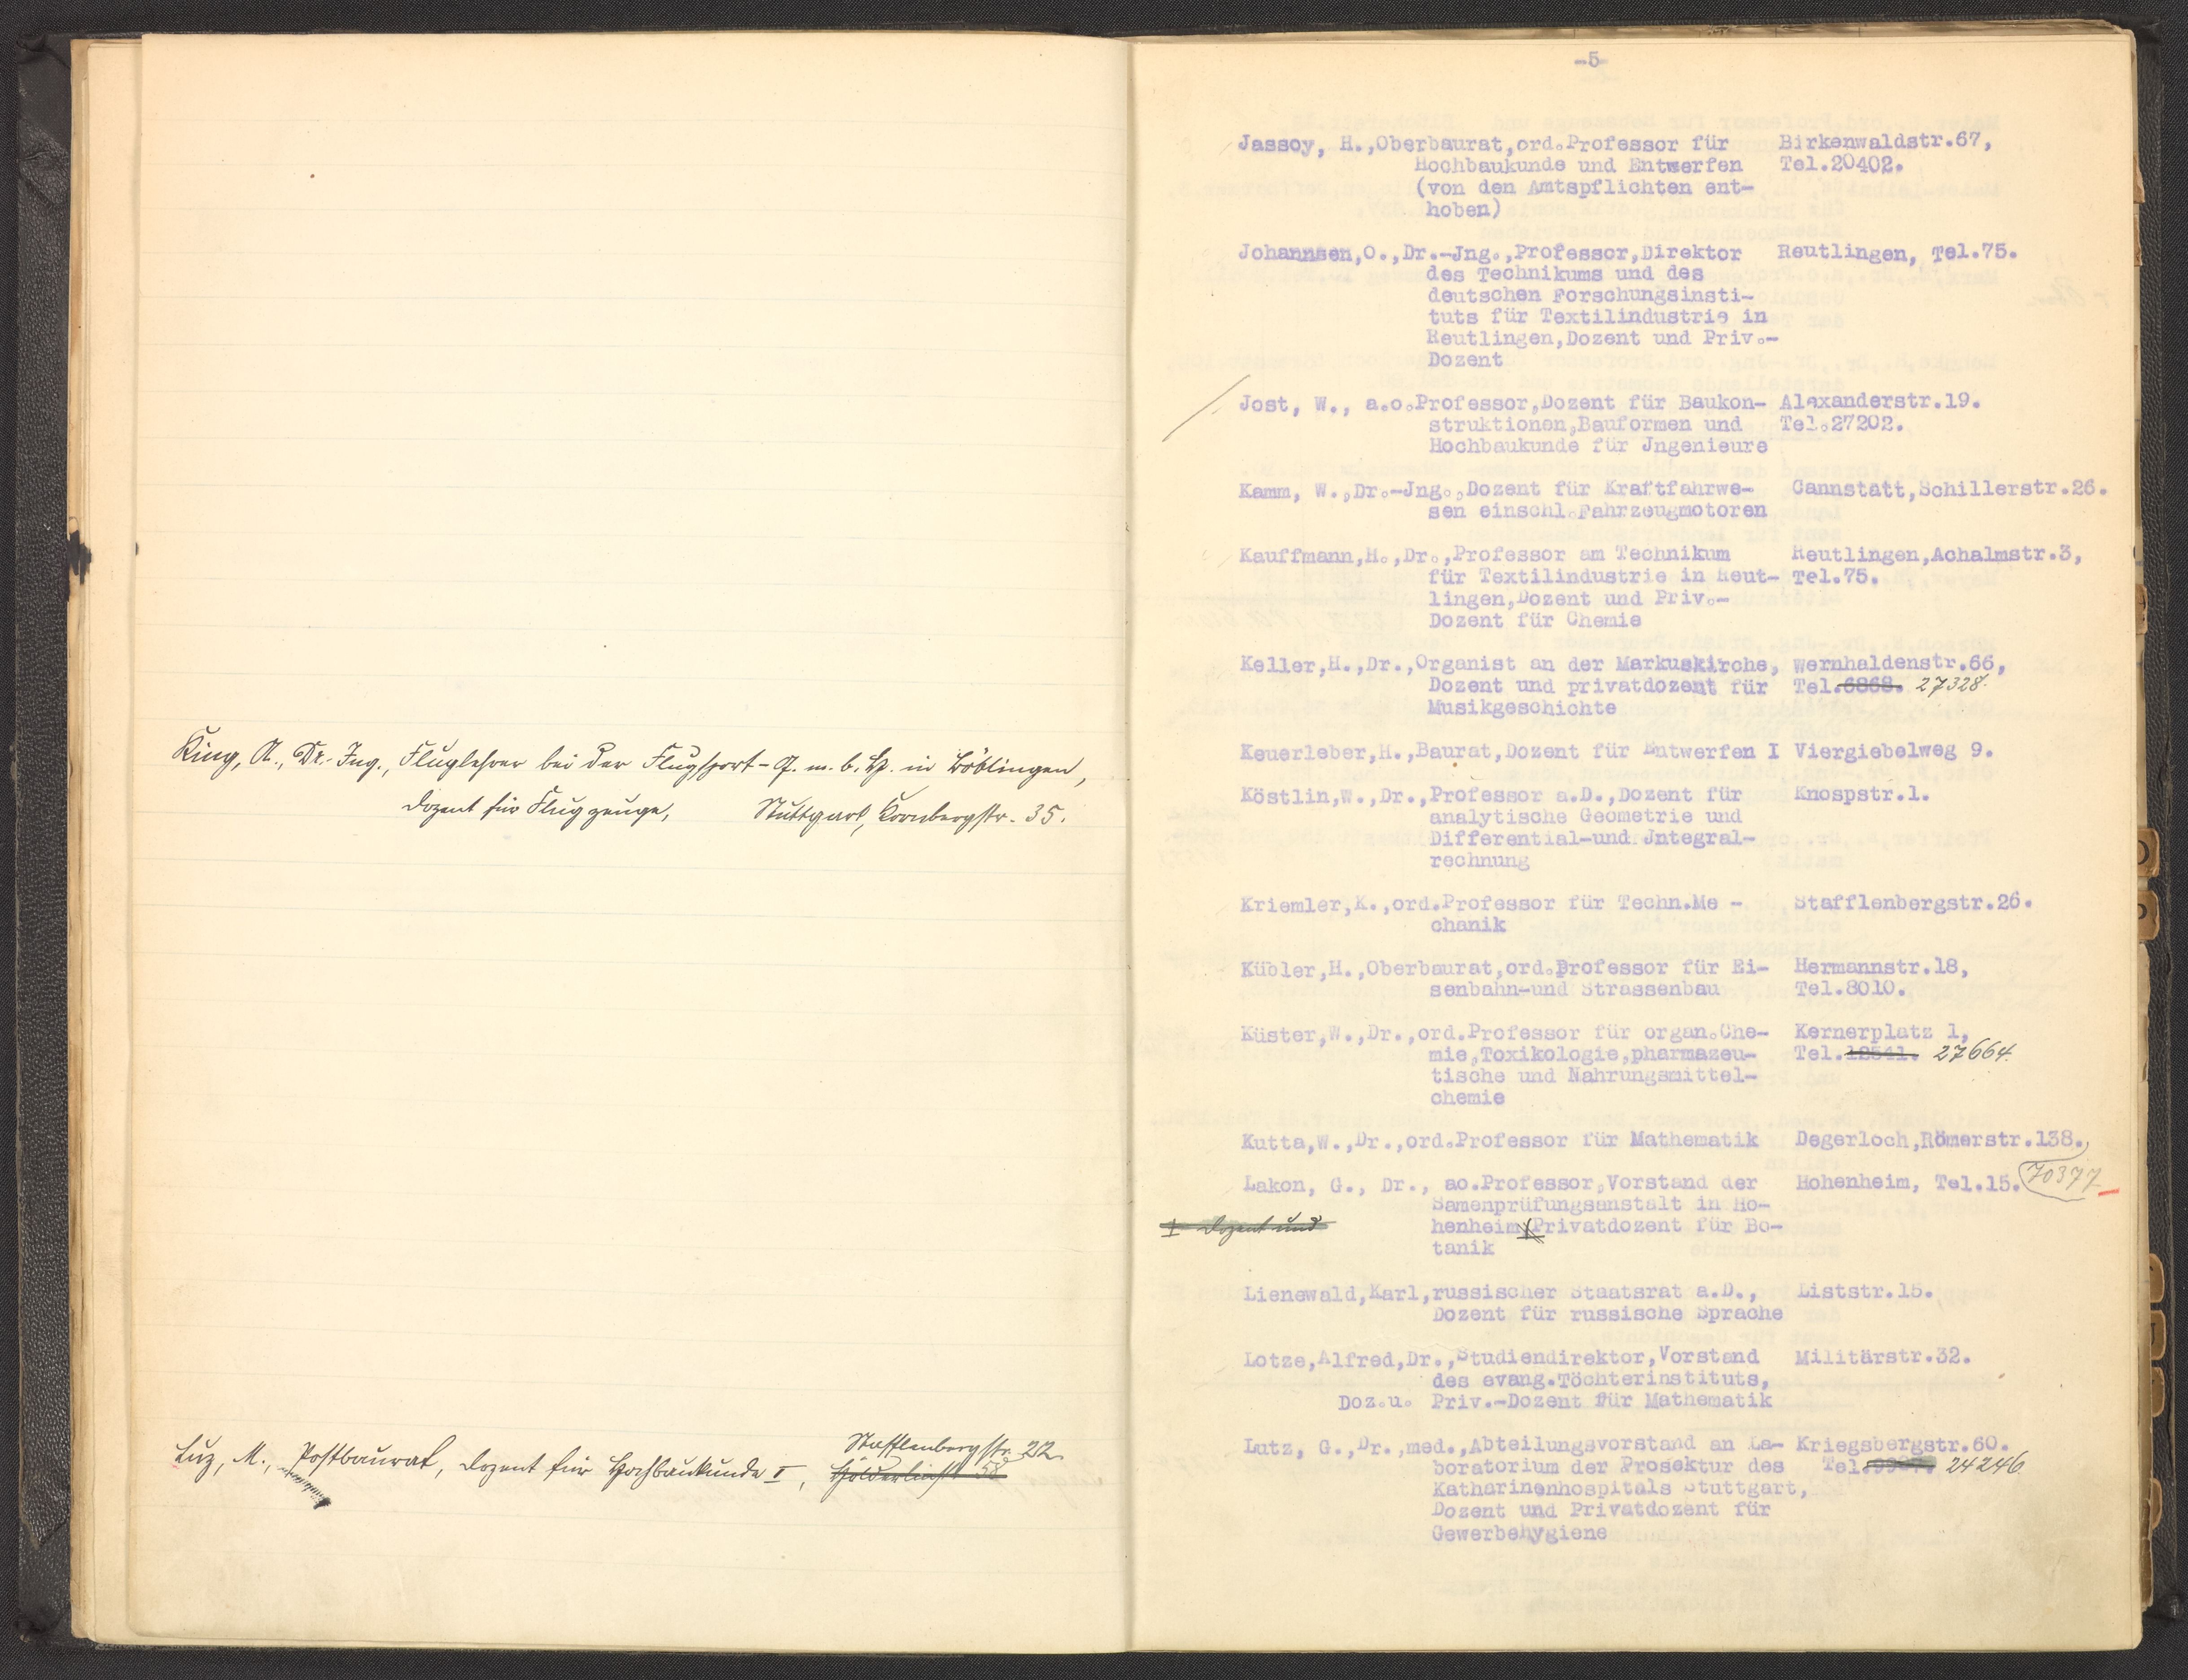 King, A., Dr.-Ing., Fluglehrer bei der Flugsport-G.m.b.H. in Böblingen,
Dozent für Flugzeuge, Stuttgart, Kornbergstr. 35.
Luz, M., Postbaurat, Dozent für Hochbaukunde I, Hölderlinstr. 58
Stafflenbergstr. 22
-5-
Jassoy, H.,Oberbaurat,ord.Professor für Birkenwaldstr.67,
Hochbaukunde und Entwerfen Tel.20402.
(von den Amtspflichten ent-
hoben)
Johannsen,O.,Dr.-Jng.,Professor,Direktor Reutlingen, Tel.75.
des Technikums und des
deutschen Forschungsinsti-
tuts für Textilindustrie in
Reutlingen,Dozent und Priv.-
Dozent
Jost, W., a.o.Professor,Dozent für Baukon- Alexanderstr.19.
struktionen,Bauformen und Tel.27202.
Hochbaukunde für Jngenieure
Kamm, W.,Dr.-Jng.,Dozent für Kraftfahrwe- Cannstatt,Schillerstr.26.
sen einschl.Fahrzeugmotoren
Kauffmann,H.,Dr.,Professor am Technikum Reutlingen,Achalmstr.3,
für Textilindustrie in Reut- Tel.75.
lingen,Dozent und Priv.-
Dozent für Chemie
Keller,H.,Dr.,Organist an der Markuskirche, Wernhaldenstr.66,
Dozent und Privatdozent für Tel.6868. 27328.
Musikgeschichte
Keuerleber,H.,Baurat,Dozent für Entwerfen I Viergiebelweg 9.
Köstlin,W.,Dr.,Professor a.D.,Dozent für Knospstr.1.
analytische Geometrie und
Differential-und Jntegral-
rechnung
Kriemler,K.,ord.Professor für Techn.Me - Stafflenbergstr.26.
chanik
Kübler,H.,Oberbaurat,ord.Professor für Ei- Hermannstr.18,
senbahn-und Strassenbau Tel.8010.
Küster,W.,Dr.,ord.Professor für organ.Che- Kernerplatz 1,
mie,Toxikologie,pharmazeu- Tel.12541. 27664.
tische und Nahrungsmittel-
chemie
Kutta,W.,Dr.,ord.Professor für Mathematik Degerloch,Römerstr.138.
Lakon, G., Dr., ao.Professor,Vorstand der Hohenheim, Tel.15. 70377
Samenprüfungsanstalt in Ho-
Dozent und henheim,Privatdozent für Bo-
tanik
Lienewald,Karl,russischer Staatsrat a.D., Liststr.15.
Dozent für russische Sprache
Lotze,Alfred,Dr.,Studiendirektor,Vorstand Militärstr.32.
des evang.Töchterinstituts,
Doz.u. Priv.-Dozent für Mathematik
Lutz, G.,Dr.,med.,Abteilungsvorstand an La- Kriegsbergstr.60.
boratorium der Prosektur des Tel. 24246
Katharinenhospitals Stuttgart,
Dozent und Privatdozent für
Gewerbehygiene